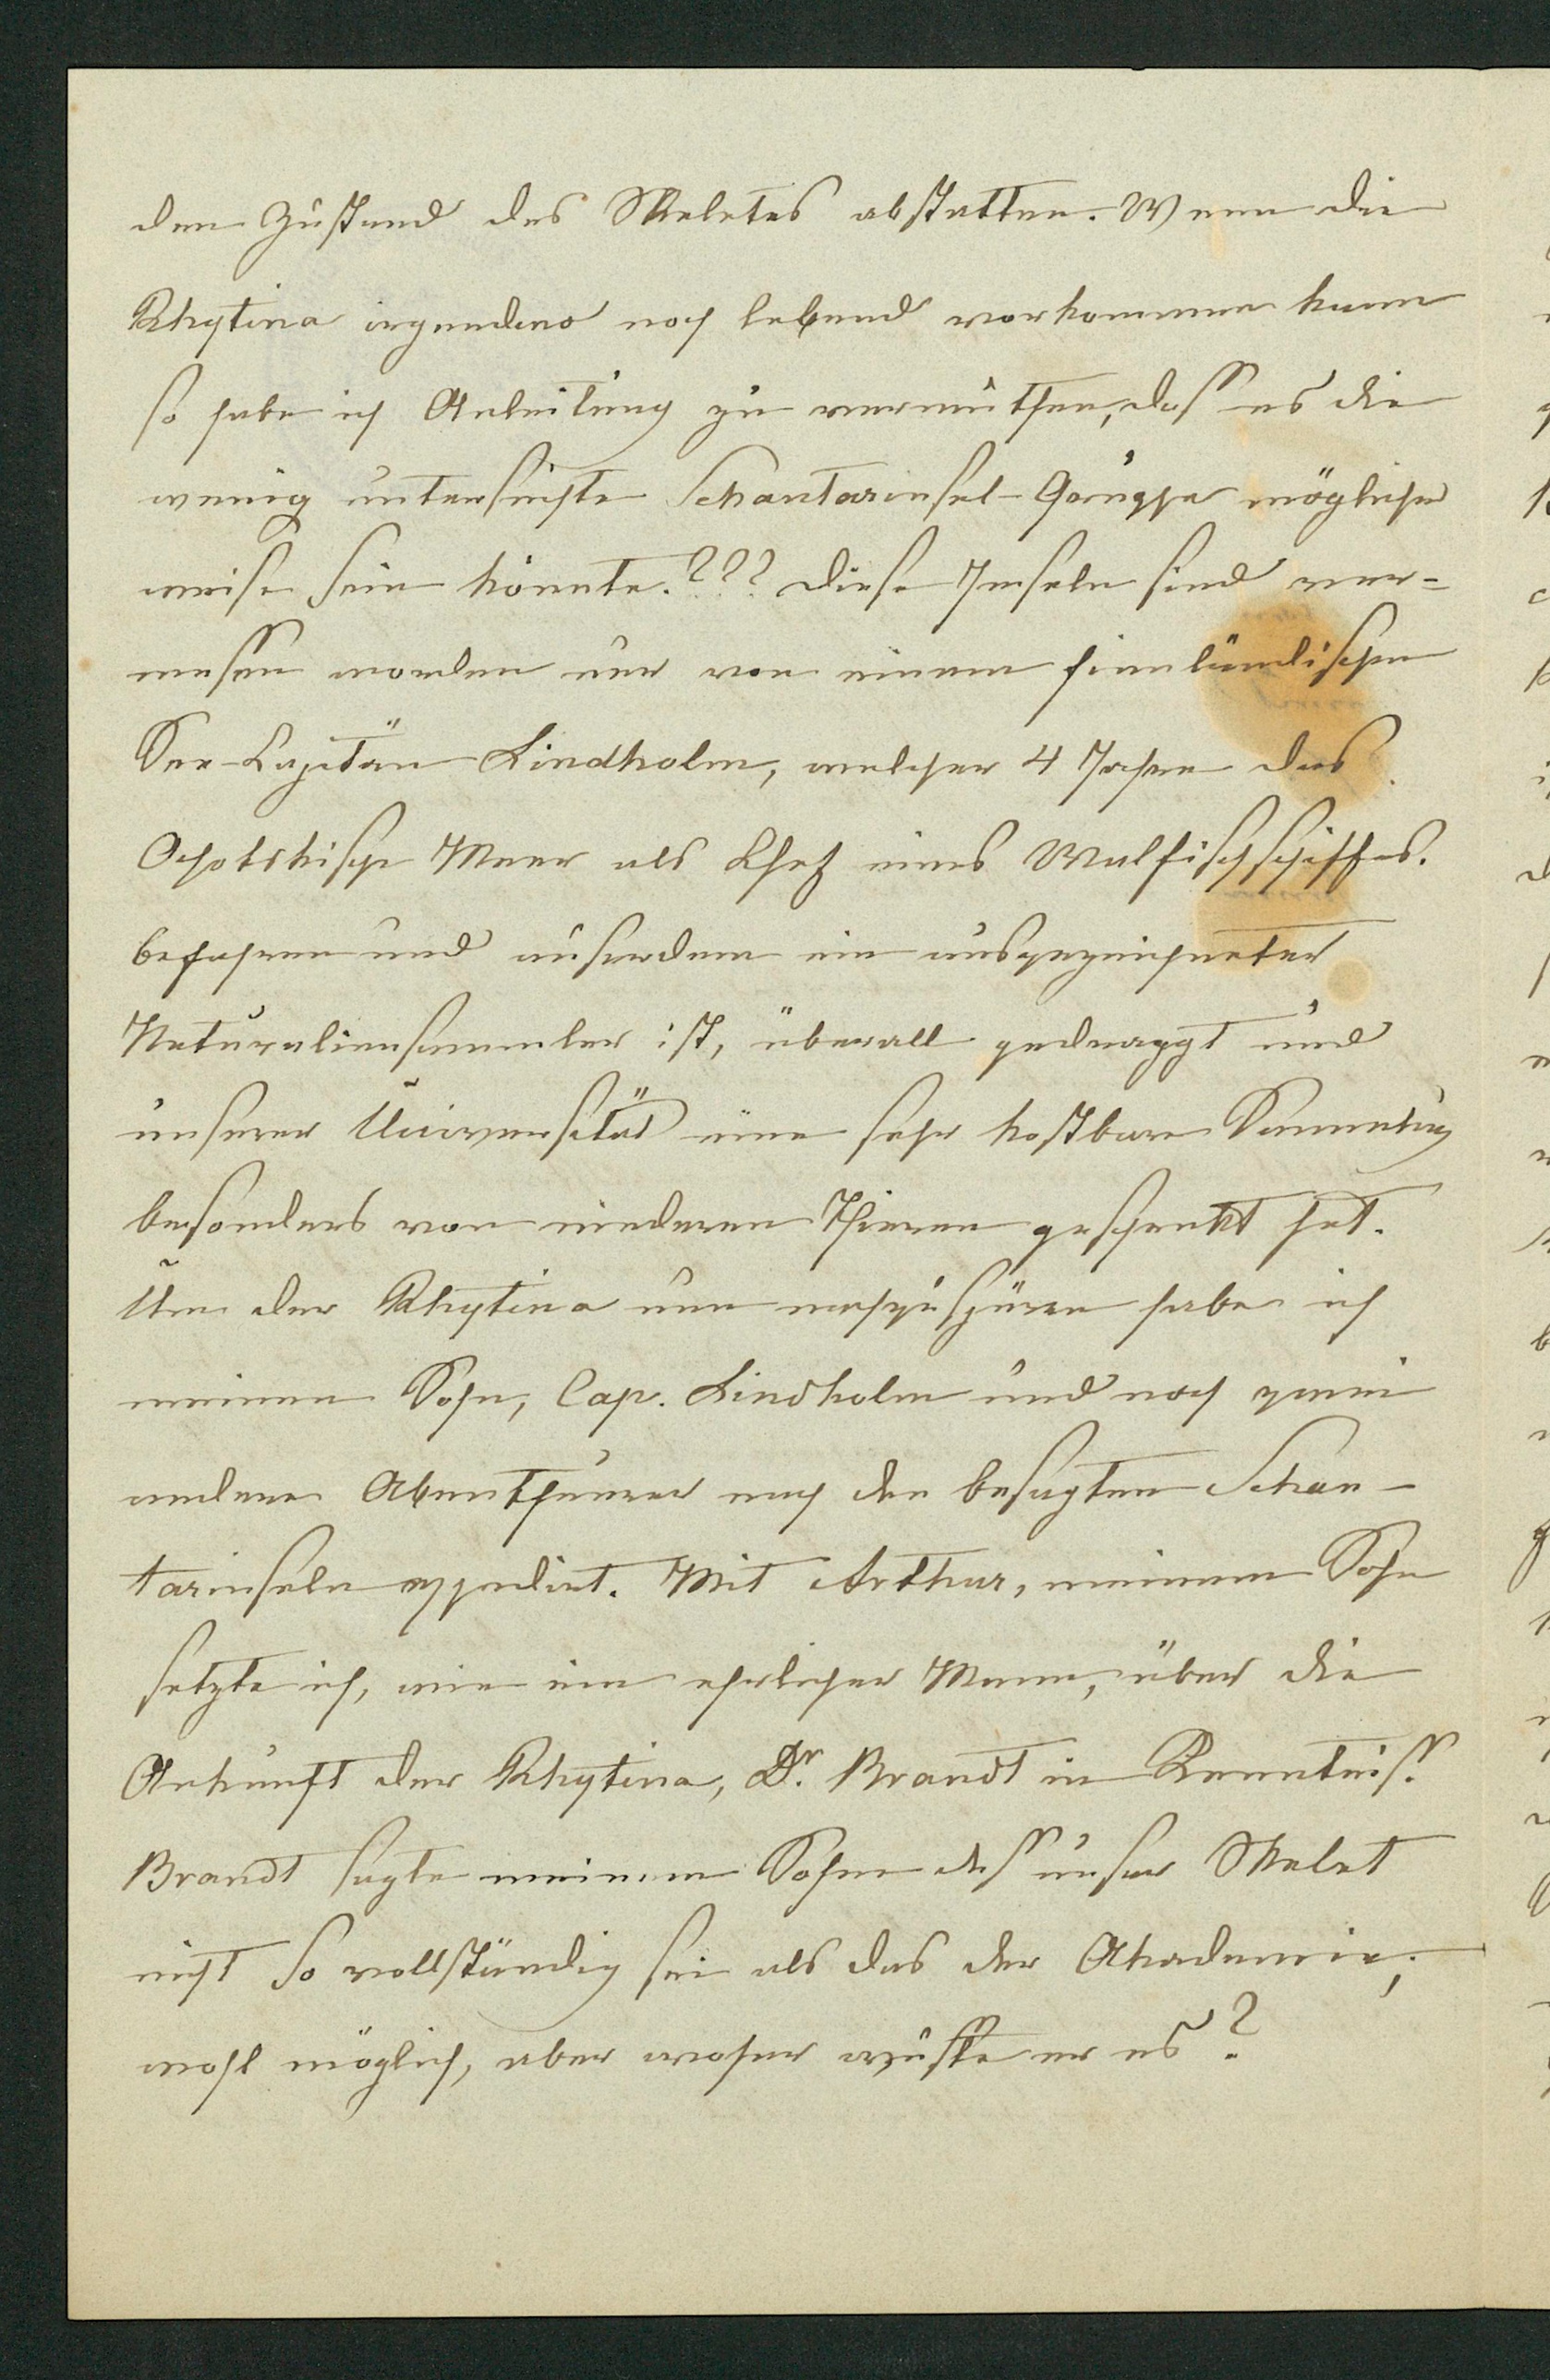 den Zustand des Skeletes abstatten. Wenn die
Rhytina irgendwo noch lebend vorkommen kann
so habe ich Anleitung zu vermuthen, dass es die
wenig untersuchte Schantarinsel-Gruppe möglicher
weise sein könnte.??? Diese Inseln sind ver=
messen worden nur von einem finnländischen
See-Capitän Lindholm, welcher 4 Jahre das
Ochotskische Meer als Chef eines Walfischschiffes.
befahren und auserdem ein ausgezeichneter
Naturaliensammler ist, überall gedraggt und
unserer Universität eine sehr kostbare Sammlung
besonders von niederen Thieren geschenkt hat.
Um der Rhytina nun nachzuspüren habe ich
meinen Sohn, Cap. Lindholm und noch zwei
andere Abentheurer nach den besagten Schan-
tarinseln expedirt. Mit Arthur, meinem Sohn
setzte ich, wie ein ehrlicher Mann, über die
Ankunft der Rhytina, Dr. Brandt in Kenntniss.
Brandt sagte meinem Sohne dass unser Skelet
nicht so vollständig sei als das der Akademie;
wohl möglich, aber woher wusste er es?